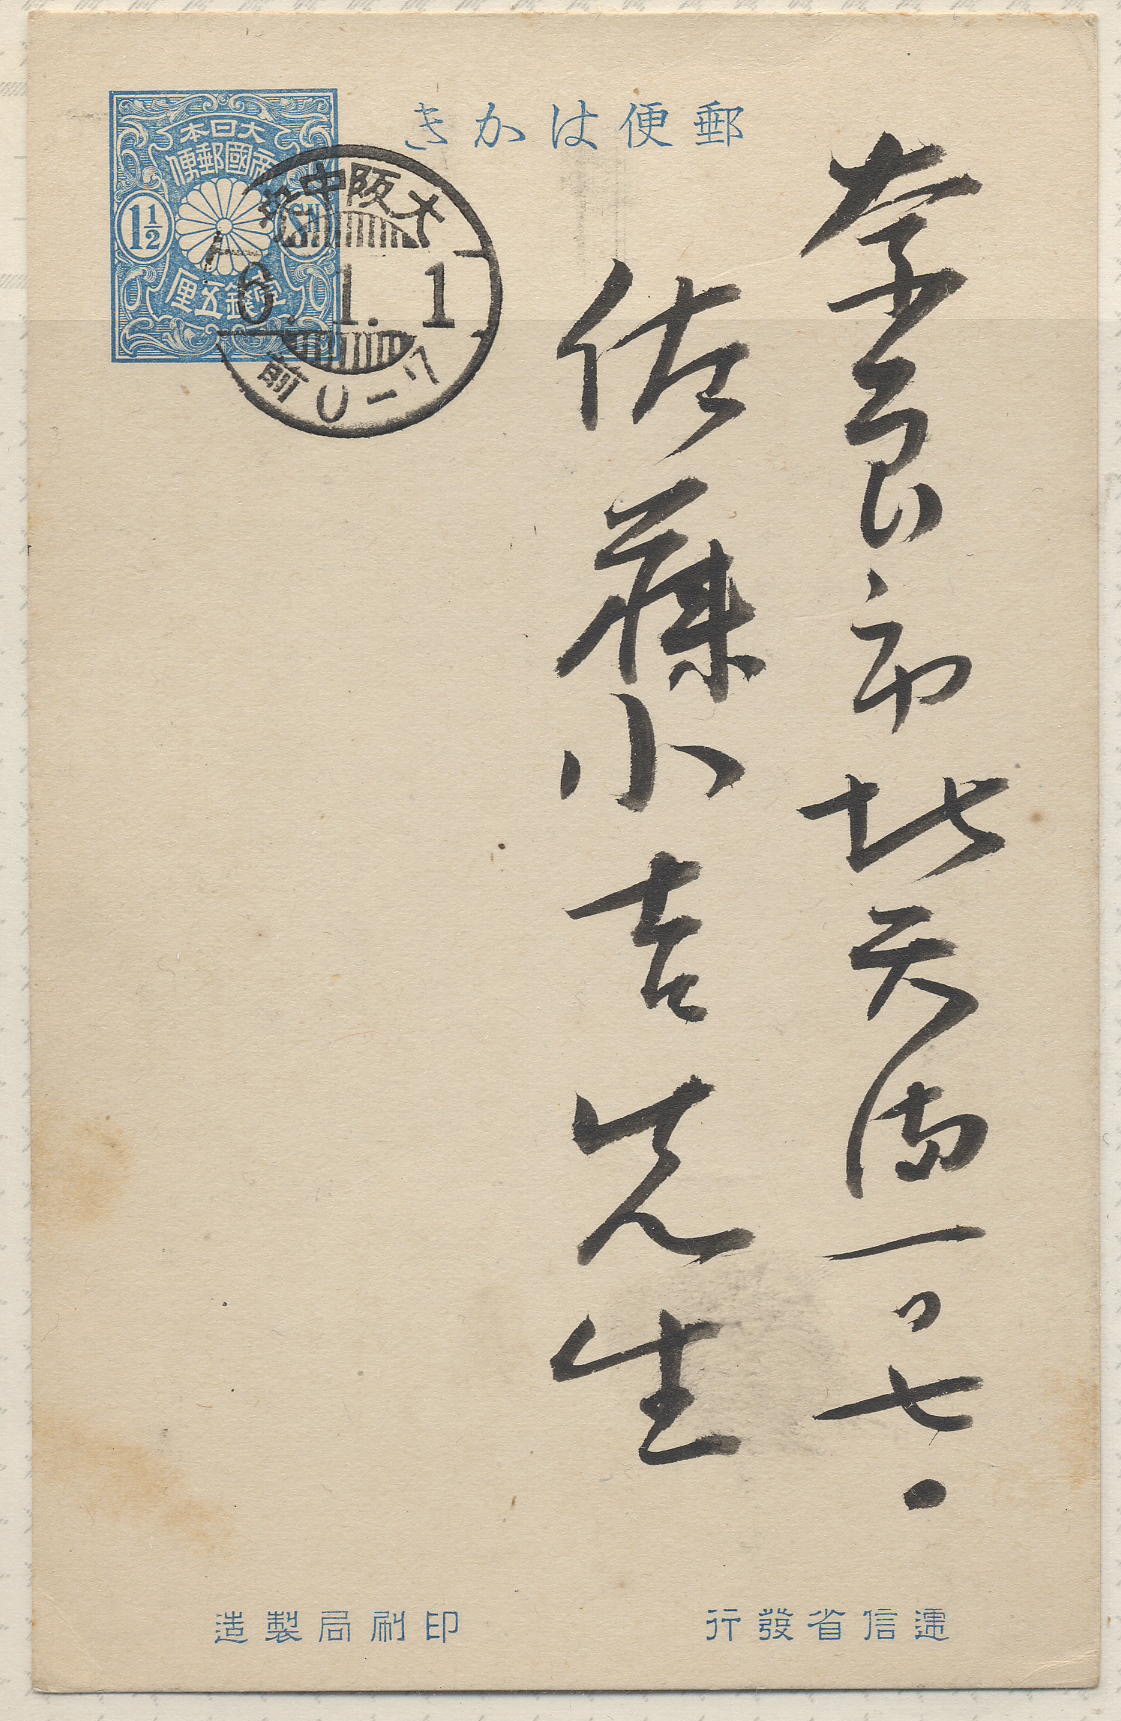 郵便はかき
大日本
帝國郵便
1½
SN
壹錢五厘
大阪中央
6.1.1
前0-7
奈良市北天満一ノ七.
佐藤小吉先生
遞信省發行
印刷局製造